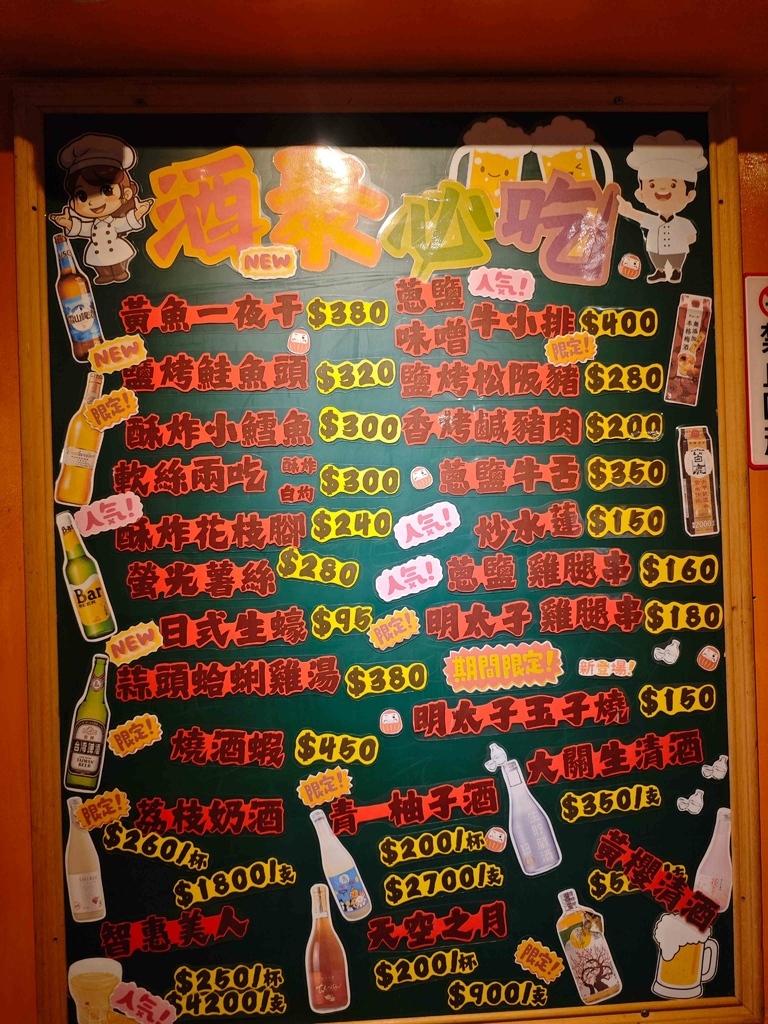 酒泰必吃
NEW
黃魚一夜干 $380
NEW
鹽烤鮭魚頭 $320
限定!
酥炸小鱈魚 $300
軟絲兩吃 酥炸 白灼 $300
人気!
酥炸花枝腳 $240
螢光薯絲 $280
NEW
日式生蠔 $95
蒜頭蛤蜊雞湯 $380
限定!
燒酒蝦 $450
人気!
蔥鹽
味噌 牛小排 $400
限定!
鹽烤松阪豬 $280
香烤鹹豬肉 $200
蔥鹽牛舌 $350
人気!
炒水蓮 $150
人気!
蔥鹽 雞腿串 $160
限定!
明太子 雞腿串 $180
期間限定!
新登場!
明太子玉子燒 $150
大關生清酒
$350/支
限定!
荔枝奶酒
$260/杯
$1800/支
限定!
青一柚子酒
$200/杯
$2700/支
黄櫻清酒
智惠美人
$250/杯
$4200/支
人気!
天空之月
$200/杯
$900/支
限定!
Bar
BEER
台灣啤酒
TAIWAN
BEER